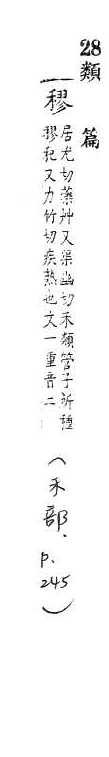 28類篇
穋 居尤切藥艸又渠幽切禾類管子祈種
穋秜又力竹切疾熟也文一重音二
(禾部, p. 245)